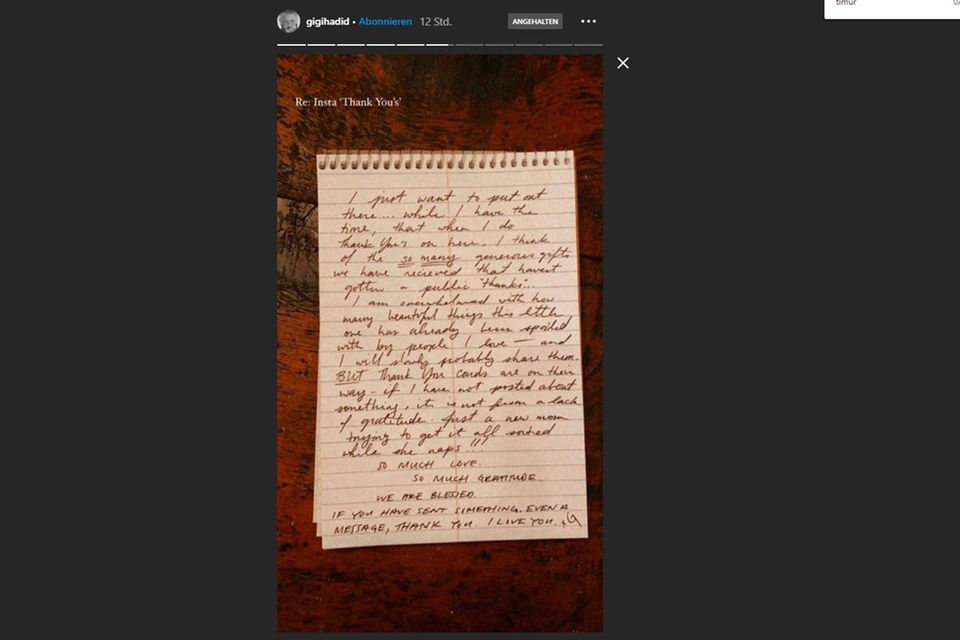 timur
gigihadid • Abonnieren 12 Std.
ANGEHALTEN
Re: Insta 'Thank You's'
I just want to put out
there... while I have the
time, that when I do
Thank You's on here, I think
of the so many generous gifts
we have recieved that havent
gotten a public "thanks"...
I am overwhelmed with how
many beautiful things this little
one has already been spoiled
with by people I love — and
I will slowly probably share them.
BUT Thank You cards are on their
way - if I have not posted about
something, it is not from a lack
of gratitude. Just a new mom
trying to get it all sorted
while she naps!!!
SO MUCH LOVE.
SO MUCH GRATITUDE.
WE ARE BLESSED.
IF YOU HAVE SENT SOMETHING, EVEN A
MESSAGE, THANK YOU. I LOVE YOU. xG